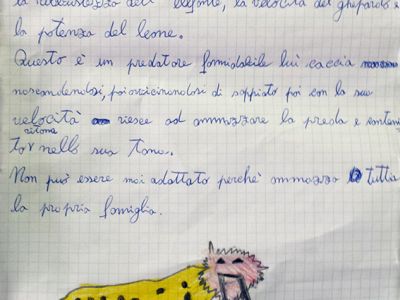 la robustezza dell' elefonte, la velocità del ghepardo e
la potenza del leone.
Questo è un predatore formidabile lui caccia
nascondendosi, poi avvicinandosi di soppiatto poi con la sua
velocità riesce ad ammazzare la preda e
ritorna
nella sua tana.
Non può essere mai adattato perchè ammazza tutta
la propria famiglia.